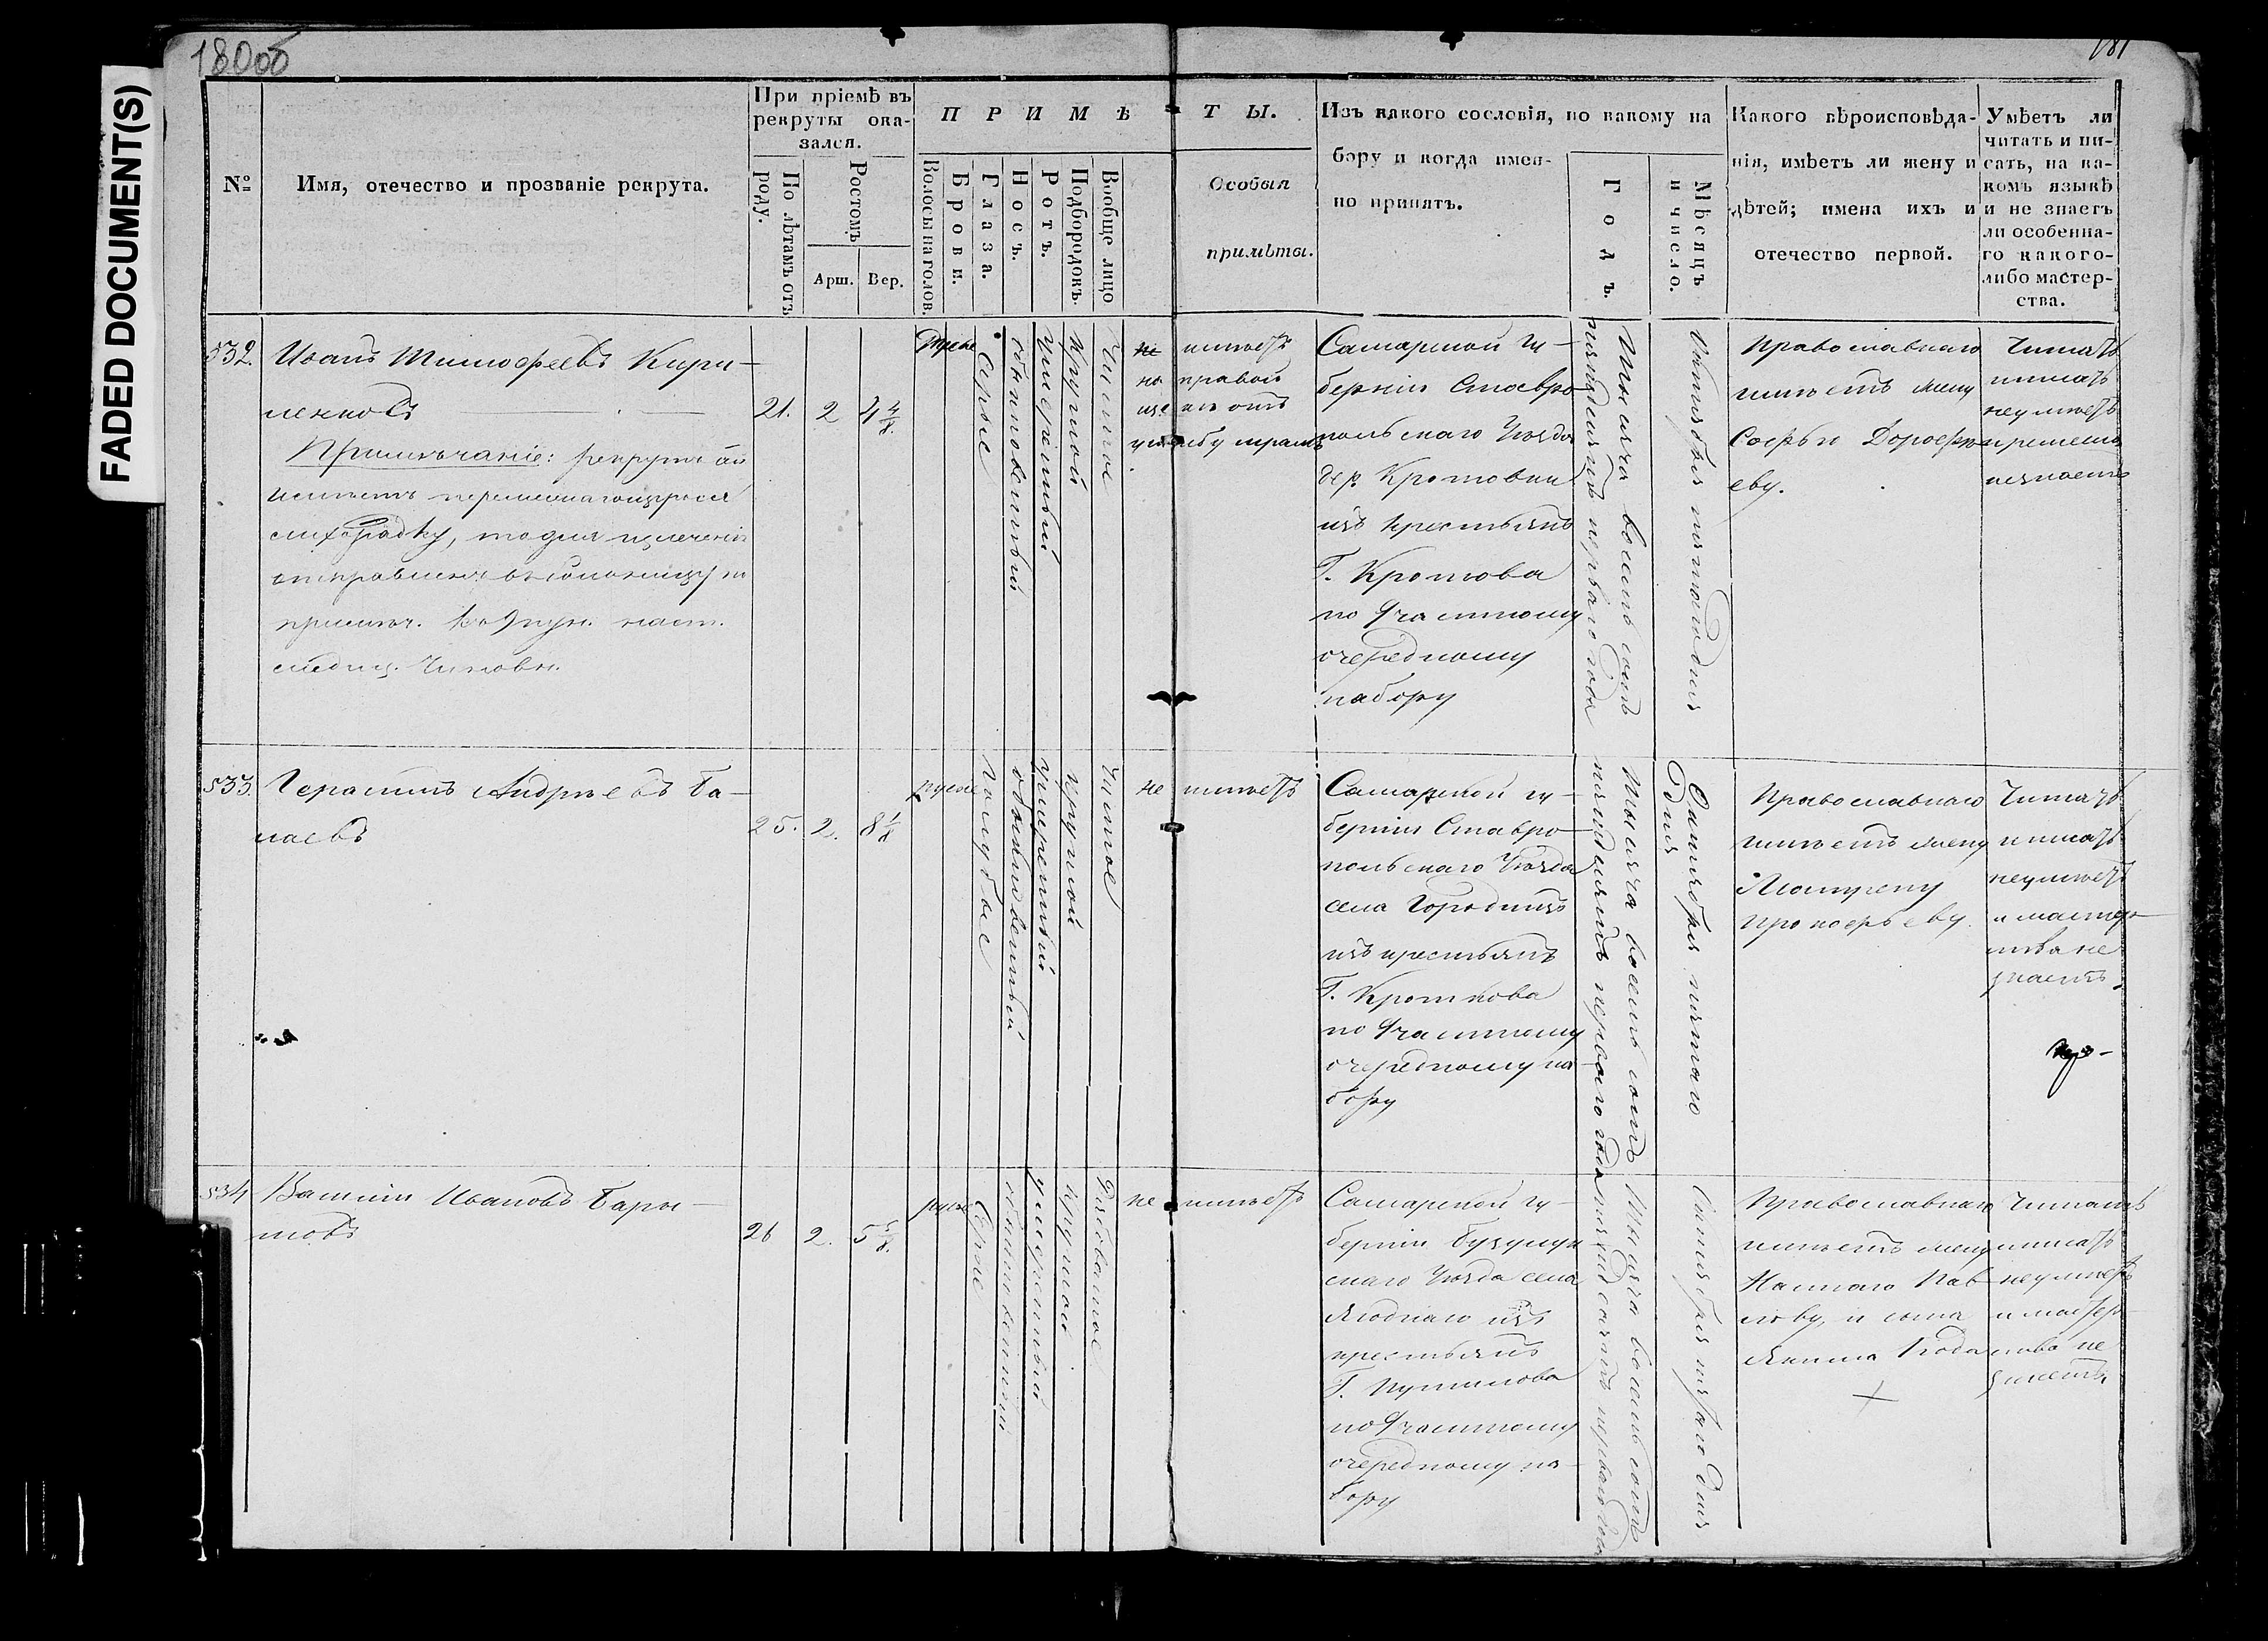 FADED DOCUMENT(S)
180об
181
№
Имя, отечество и прозваніе рекрута.
При пріемѣ въ
рекруты ока-
зался.
По лѣтамъ отъ
роду.
Ростомъ
Арш. Вер.
ПРИМѢ
ТЫ.
Волосы на голов.
Брови.
Глаза.
Носъ.
Ротъ.
Подбородокъ.
Вообще лицо
Особыя
примѣты.
Изъ какого сословія, по какому на
бору и когда имен-
но принятъ.
Годъ.
Мѣсяцъ
и число.
Какого вѣроисповѣда-
нія, имѣетъ ли жену и
дѣтей; имена ихъ и
отечество первой.
Умѣетъ ли
читать и пи-
сать, на ка-
комъ языкѣ
и не знаетъ
ли особенна-
го какого-
либо мастер-
ства.
532.
Иванъ Тимофеевъ Кири-
ленковъ
Примѣчаніе: рекрутъ
лихорадку,
21.
2
4 4/8.
Сѣрые
обыкновенный
умѣренный
круглой
Чистое
имѣетъ
на правой
щекѣ отъ
Самарской гу-
берніи Ставро-
польскаго Уѣзда
дер. Кротовки
изъ крестьянъ
Г. Кроткова
по 9 частному
очередному
набору
Тысяча восемь сотъ
пятдесятъ перваго года
Октября пятаго дня
Православнаго
имѣетъ жену
Софью Дорофѣ-
еву.
Читать
писать
неумѣетъ
и ремесла
незнаетъ
533.
Герасимъ Андреевъ Ба-
лаевъ
25.
2.
8 1/8
русые
голубые
обыкновенный
умѣренный
круглой
Чистое
не имѣетъ
Самарской гу-
берніи Ставро-
польскаго Уѣзда
села Городищъ
изъ крестьянъ
Г. Кроткова
по 9 частному
очередному на-
бору
Тысяча восемь сотъ
пятдесятъ перваго года
Октября пятаго
дня
Православнаго
имѣетъ жену
Матрену
Прокофьеву.
Читать
писать
неумѣетъ
и мастер-
ства не
знаетъ.
534
Василій Ивановъ Бары-
шовъ
26
2.
5 5/8.
русые
Сѣрые
обыкновенный
умѣренный
круглой
Рябоватое
не имѣетъ
Самарской гу-
берніи Бузулук
скаго Уѣзда села
Яблонаго изъ
крестьянъ
Г. Путилова
по 9 частному
очередному на-
бору
Тысяча восемь сотъ
пятдесятъ перваго года
Октября пятаго дня
Православнаго
имѣетъ жену
Пав-
лову, и сына
Якима
Читать
писать
неумѣетъ
и мастер-
ства не
знаетъ